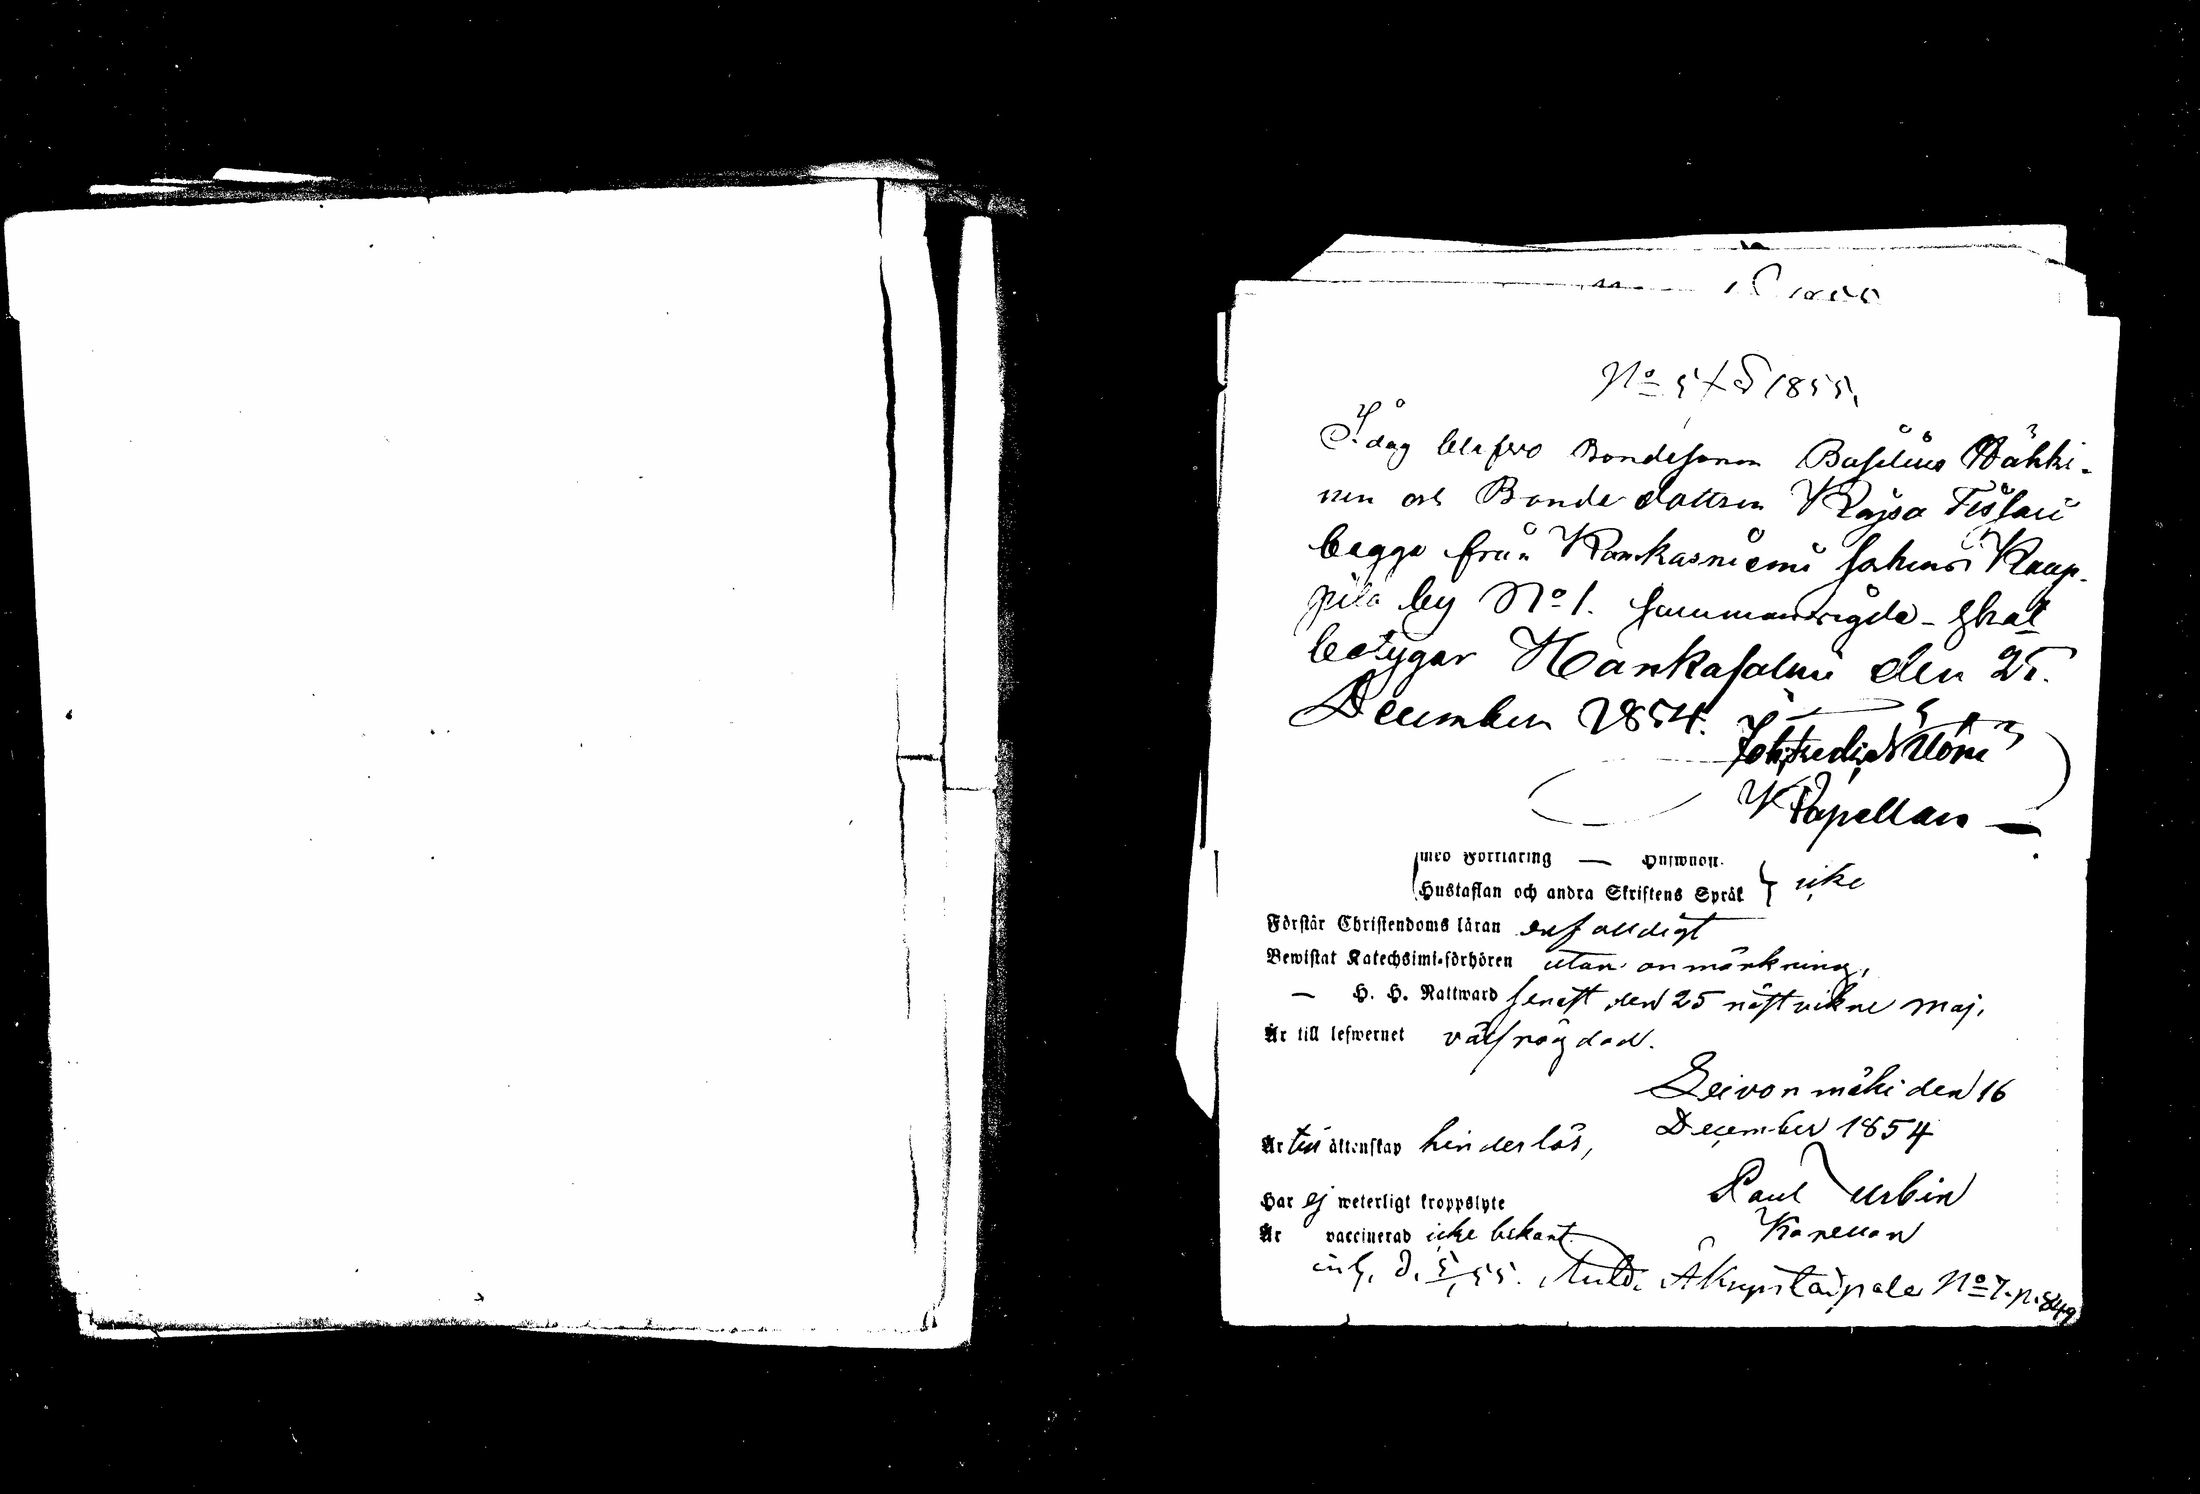 1855
No 5 1855.
I dag blefwo Bondesonen Basilius Häkki-
nen och Bondedottren Kajsa Tissari
begge från Kankasniemi sokens Kaup-
pila by No 1. sammanwigde - Hwilket
betygar Hankasalmi den 25.
December 1854.
Kapellan
med Förklaring — Hufwudst.
Hustaflan och andra Skriftens Språk } icke
Förstår Christendoms läran enfalldigt
Bewistat Katechsimi-förhören utan anmärkning,
— H. H. Nattward senast den 25 nästvikne Maj.
Är till lefwernet välfrägdad.
Leivonmäki den 16
December 1854
Är till äktenskap hinderlös,
Paul Urbin
Kapellan
Har ej weterligt kroppslyte
Är vaccinerad icke bekant.
No 7. p. 849